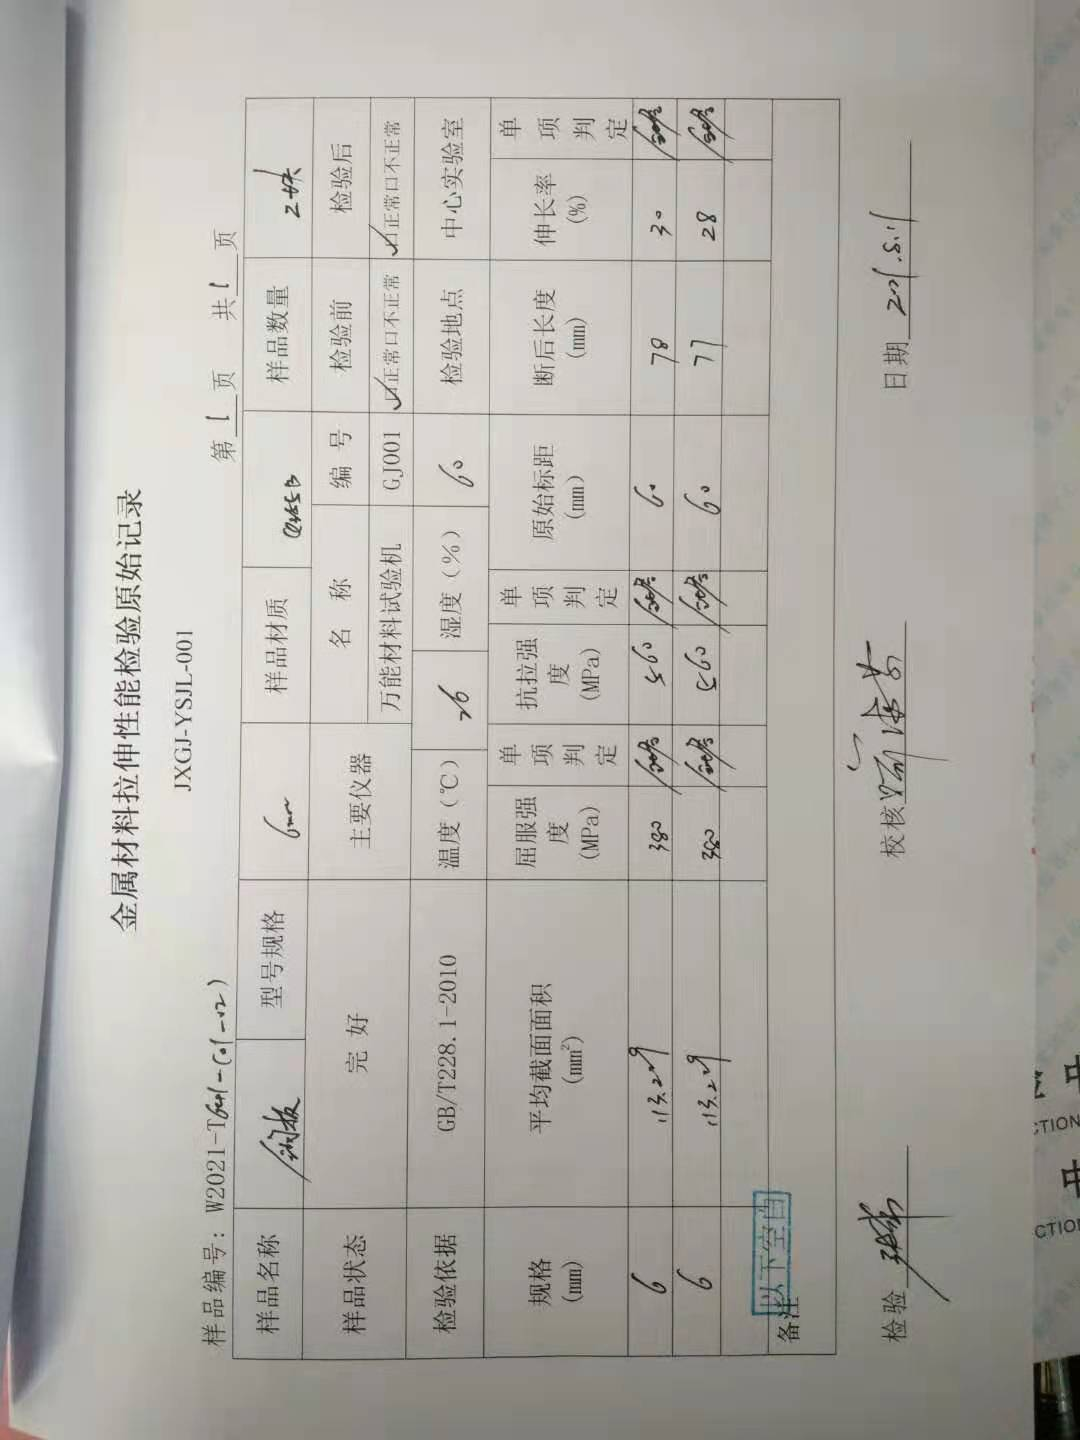 金属材料拉伸性能检验原始记录
JXGJ-YSJL-001
样品编号: W2021-T 第1页 共1页
样品名称 钢板 型号规格 6mm 样品材质 样品数量 2块
样品状态 完 好 主要仪器 名 称 编 号 检验前 检验后
万能材料试验机 GJ001 ☑正常口不正常 ☑正常口不正常
检验依据 GB/T228.1-2010 温度(℃) 26 湿度(%) 60 检验地点 中心实验室
规格(mm) 平均截面面积(mm²) 屈服强度(MPa) 单项判定 抗拉强度(MPa) 单项判定 原始标距(mm) 断后长度(mm) 伸长率(%) 单项判定
6 113.209 380 560 60 78 30
6 113.209 380 560 60 77 28
以下空白
备注
检验 校核 日期 2021.5.11
CTION 中
CTION 中